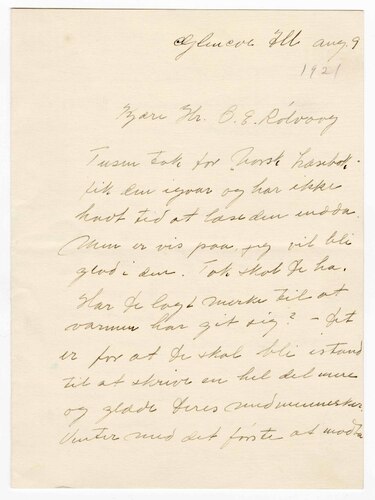 Glencoe Ill aug. 9
1921
Kjære Hr. O. E. Rölvaag
Tusen tak for Norsk Læsebok
fik den igaar og har ikke
havt tid at læse den endda
Men er vis paa jeg vil bli
glad i den. Tak skal De ha.
Har De lagt merke til at
varmen har git sig? - Det
er for at De skal bli istand
til at skrive en hel del mere
og glæde Deres medmennesker
Venter med det første at motta